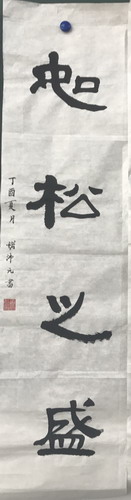 如松之盛
丁酉夏月 沛元書